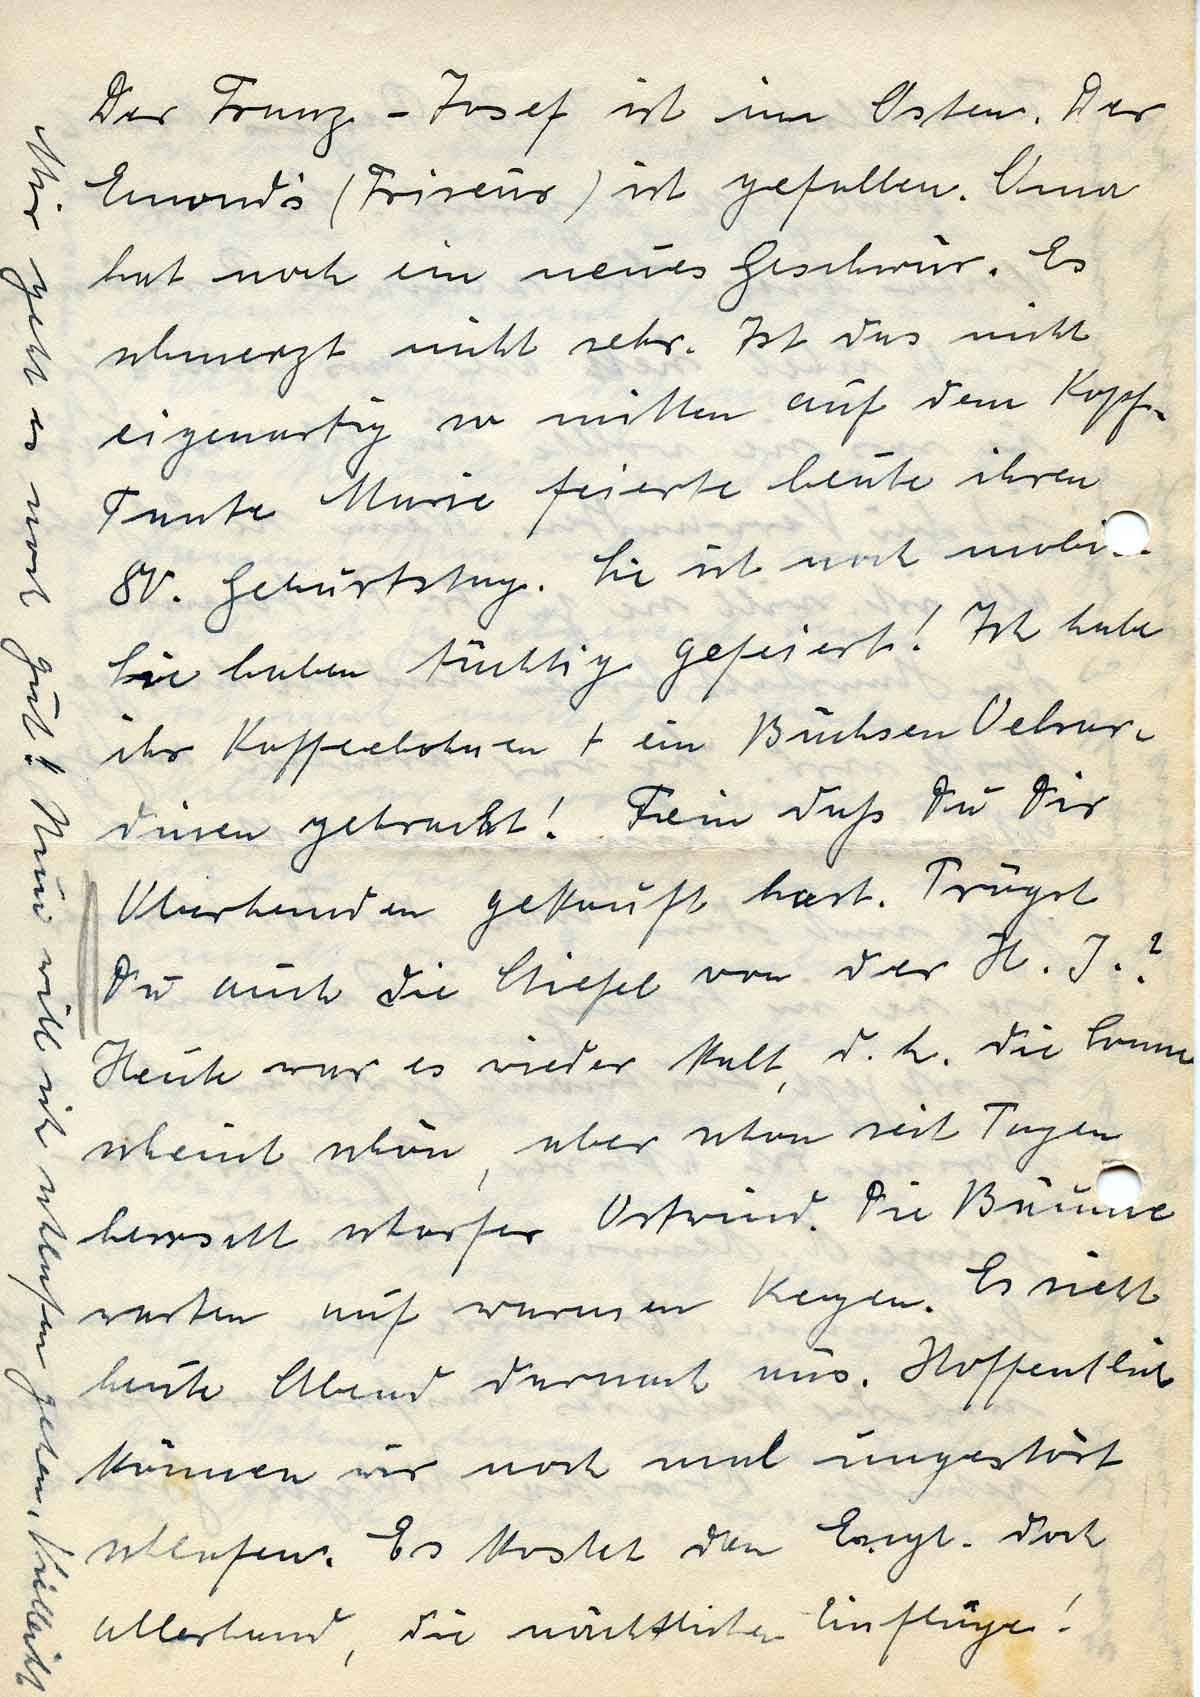 Der Franz-Josef ist im Osten. Der
Emonds (Friseur) ist gefallen. Oma
hat noch ein neues Geschwür. Es
schmerzt nicht sehr. Ist das nicht
eigenartig so mitten auf dem Kopf.
Tante Marie feierte heute ihren
80. Geburtstag. Sie ist noch mobil.
Sie haben tüchtig gefeiert! Ich habe
ihr Kaffeebohnen + ein Büchsen Oelsar-
dinen gebracht! Fein daß Du Dir
Oberhemden gekauft hast. Trägst
Du auch die Stiefel von der H. J.?
Heute war es wieder kalt, d. h. die Sonne
scheint schön, aber schon seit Tagen
herrscht scharfer Ostwind. Die Bäume
warten auf warmen Regen. Es sieht
heute Abend darnach aus. Hoffentlich
können wir noch mal ungestört
schlafen. Es kostet den Engl. doch
allerhand, die nächtlichen Einflüge!
Mir geht es noch gut! Nun will ich schlafen gehen, Vielleicht